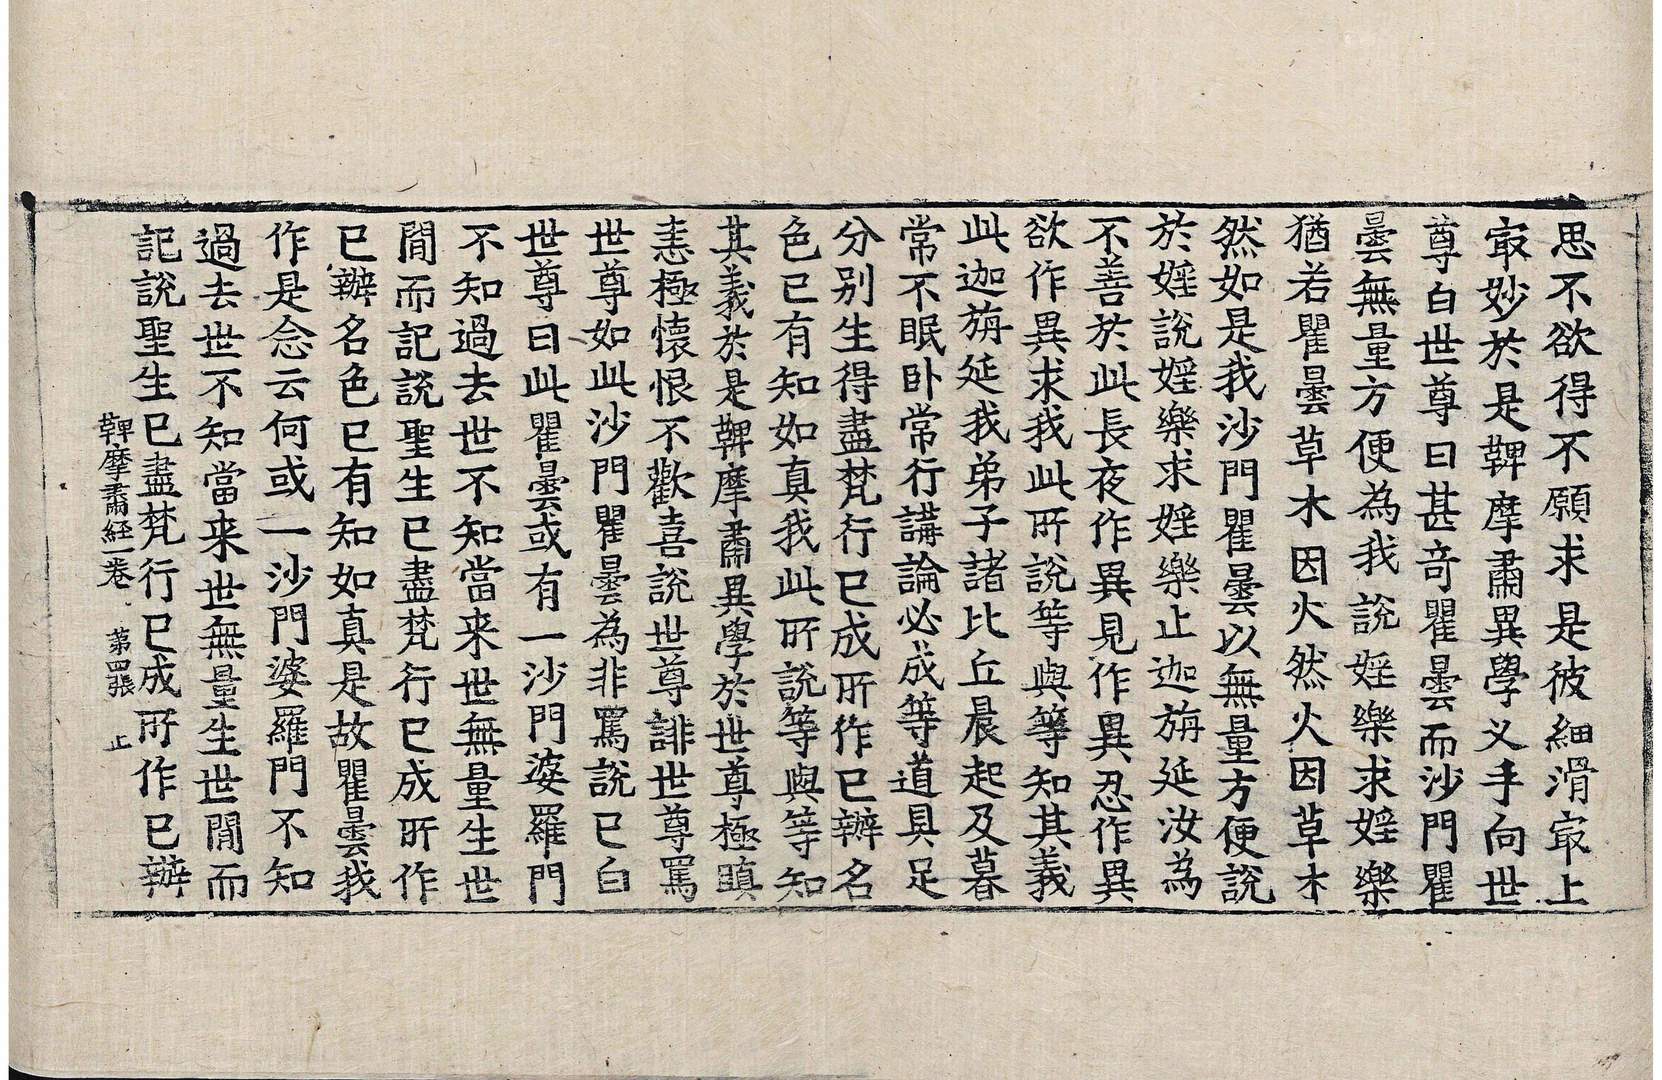 思不欲得不願求是彼細滑㝡上
㝡妙於是鞞摩肅異學叉手向世
尊白世尊曰甚竒瞿曇而沙門瞿
曇無量方便為我說婬樂求婬樂
猶若瞿曇草木因火然火因草木
然如是我沙門瞿曇以無量方便說
於婬說婬樂求婬樂止迦旃延汝為
不善於此長夜作異見作異忍作異
欲作異求我此所說等與等知其義
此迦旃延我弟子諸比丘晨起及暮
常不眠卧常行講論必成等道具足
分别生得盡梵行已成所作已辦名
色已有知如真我此所說等與等知
其義於是鞞摩肅異學於世尊極瞋
恚極懷恨不歡喜說世尊誹世尊罵
世尊如此沙門瞿曇為非罵說已白
世尊曰此瞿曇或有一沙門婆羅門
不知過去世不知當来世無量生世
間而記說聖生已盡梵行已成所作
已辦名色已有知如真是故瞿曇我
作是念云何或一沙門婆羅門不知
過去世不知當来世無量生世間而
記說聖生已盡梵行已成所作已辦
鞞摩肅經一卷 第四張 止